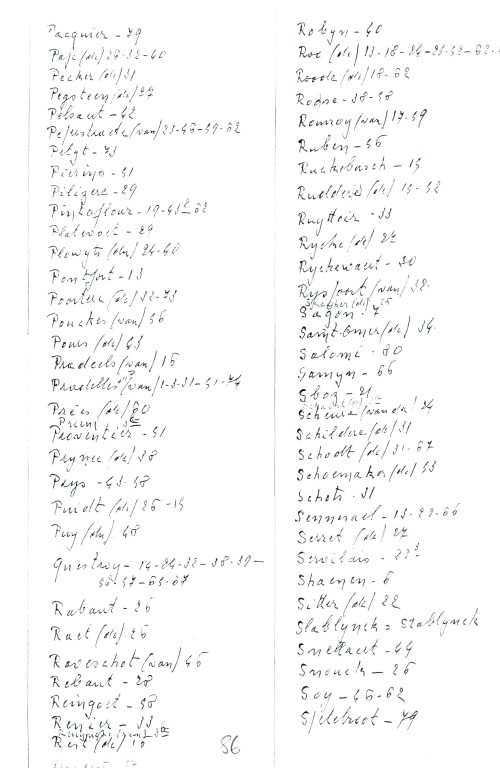 Pacquier - 79
Pape (de) 26-32-40
Pecker (de) 31
Pegsteen (de) 27
Pélsaut - 42
Petyt - 73
Pierins - 51
Piligere - 29
Pintaflour - 19-43²-62
Platevoet - 29
Plowyts (den) 24-40
Pontfort - 13
Poorter (de) 32-73
Poucker (van) 56
Pours (de) 43
Pradeels (van) 16
Pradelles (van) 1-3-31-51-74
Prées (de) 60
Proventier - 51
Prynce (de) 38
Puys - 43-58
Puidt (de) 26-19
Puy (du) 48
Questroy - 14-24-32-38-39-
56-57-65-67
Rabaut - 26
Raet (de) 26
Raveschot (van) 46
Rebaut - 28
Reingoet - 58
Renier - 33
Rest (de) 16
86
Robyn - 40
Roo (de) 13-18-24-25-52-62-
Roode (de) 18-62
Rodse - 38-58
Romroy (van) 17-59
Ruben - 56
Ruckebusch - 19
Ruddere (de) 15-52
Ruyttoir - 33
Rycke (de) 27
Ryckewaert - 30
Rysfoort (van) 38
Sagon - 7
Saint-Omer (de) 34
Salomé - 80
Samyn - 66
Sbog - 21
Scheure (van de) 24
Schildere (de) 31
Schodt (de) 31-67
Schoemaker (de) 53
Schots - 31
Sennesael - 13-22-66
Serret (de) 27
Servilais - 22²
Shaenen - 6
Sitter (de) 22
Slablynck = Stablynck
Snellaert - 44
Snouck - 26
Soy - 46-62
Spelebroot - 79